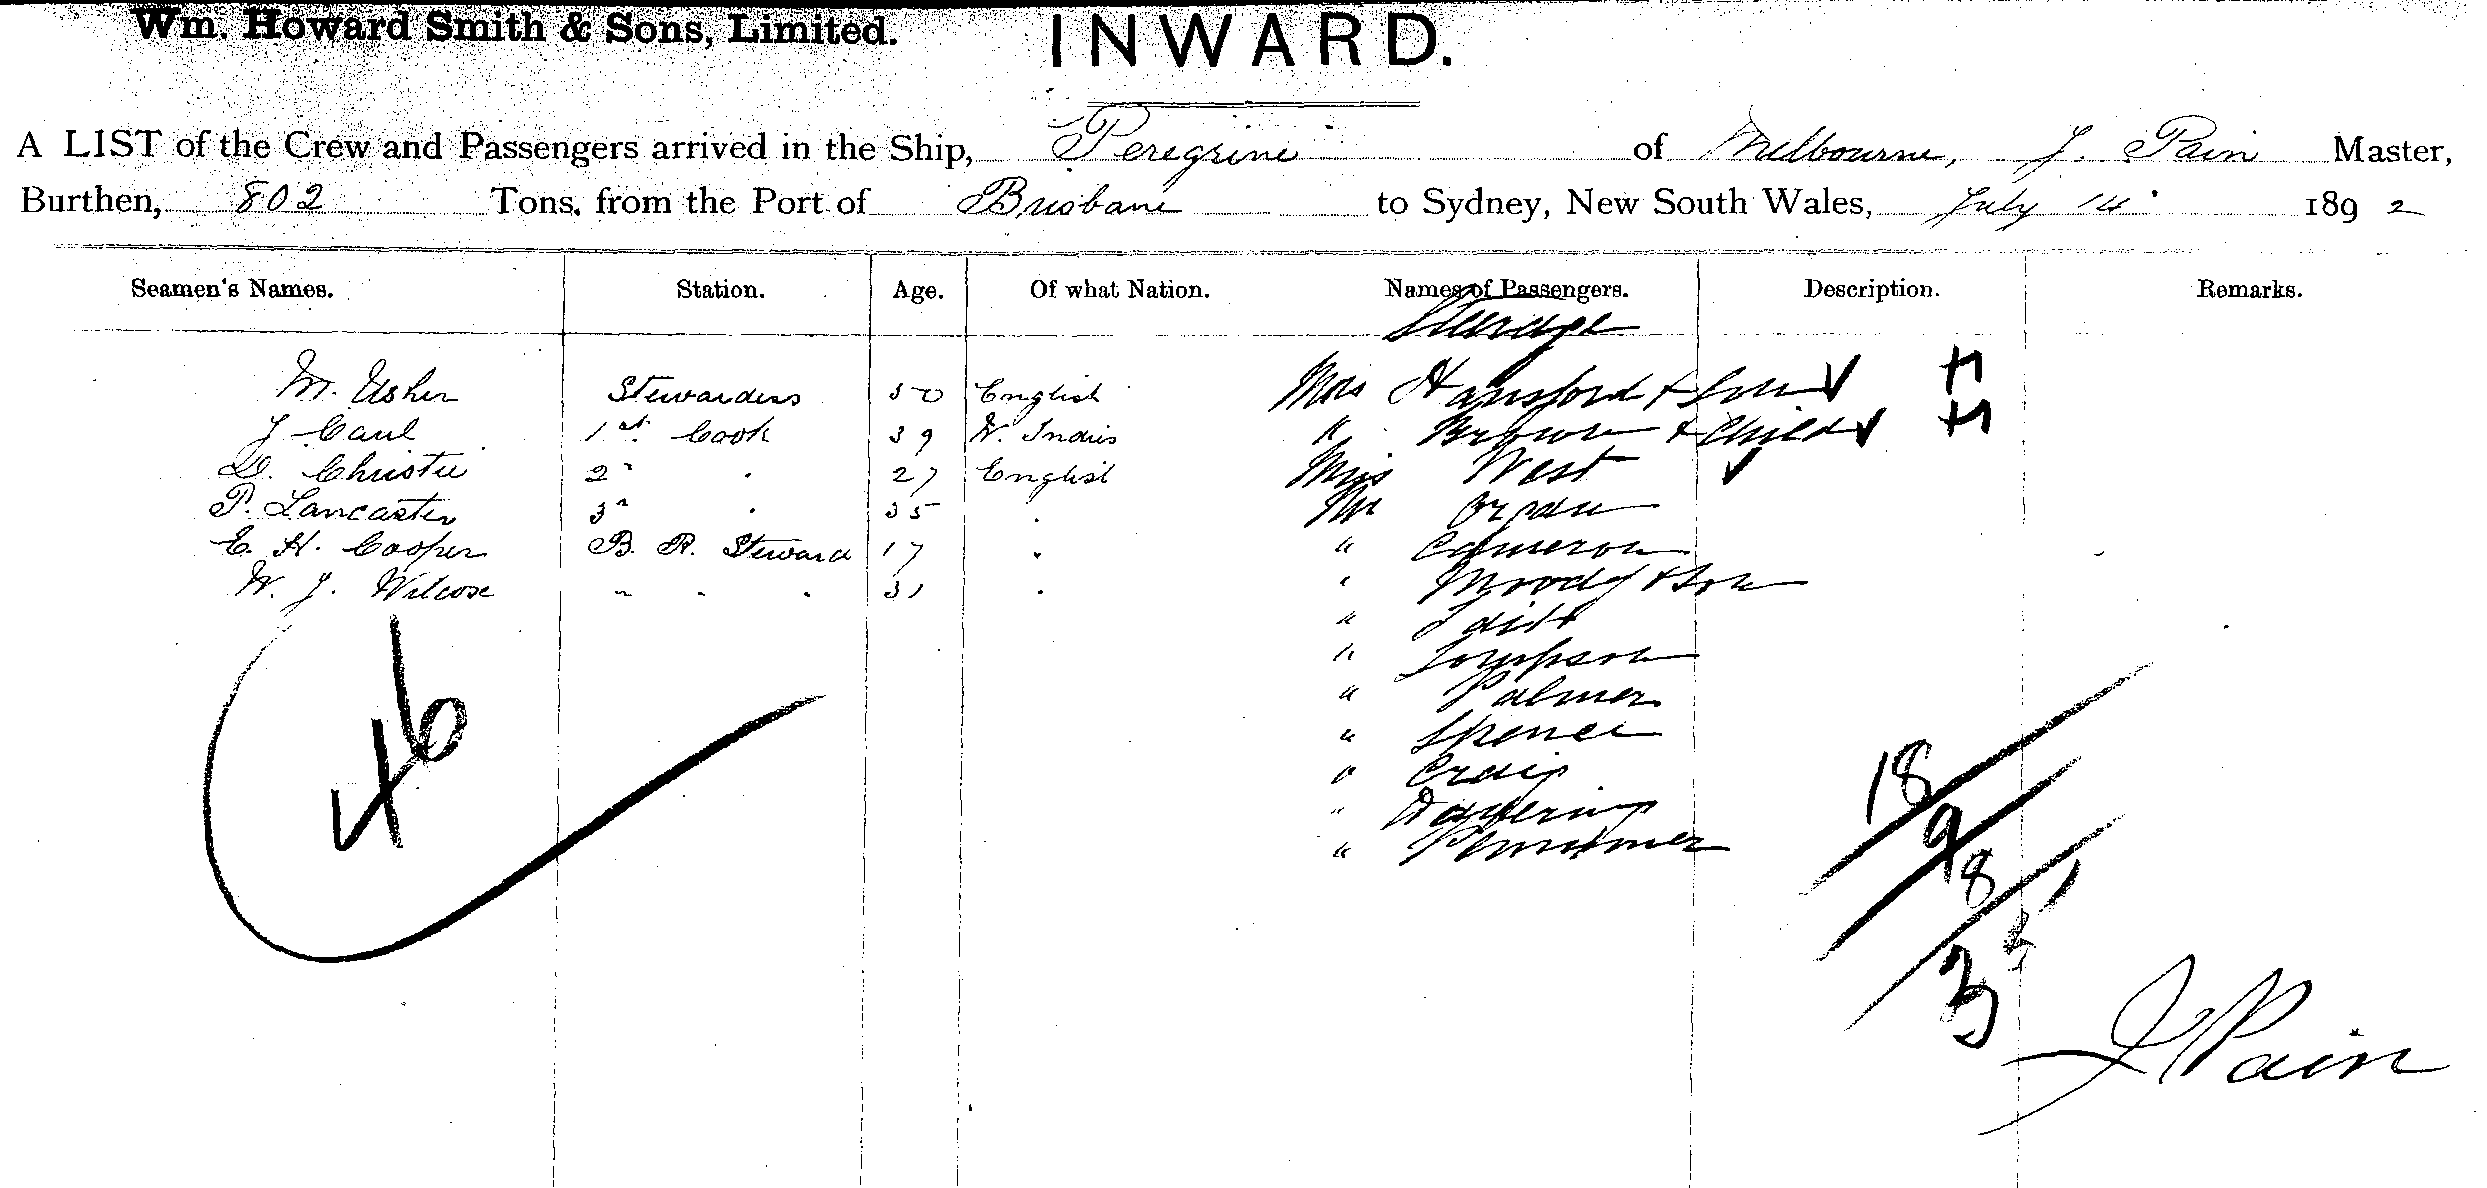 Wm. Howard Smith & Sons, Limited.
INWARD.
A LIST of the Crew and Passengers arrived in the Ship, Peregrine of Melbourne, J. Pain Master,
Burthen, 802 Tons, from the Port of Brisbane to Sydney, New South Wales, July 14 1892
Seamen's Names. Station. Age. Of what Nation. Names of Passengers. Description. Remarks.
Steerage
M. Usher Stewardess 50 English Mrs Hansford + Son
J Caul 1st Cook 39 W. Indies " Brown + Child
D. Christie 2 " 27 English Miss West
P. Lancaster 3 " 35 " Mr
E. H. Cooper B. R. Steward 17 " " Cameron
W. J. Wilcox " " " 31 " " Moody + Son
"
" Tompson
" Palmer
" Spence
" Craig
"
"
46
18
9
8
J Pain